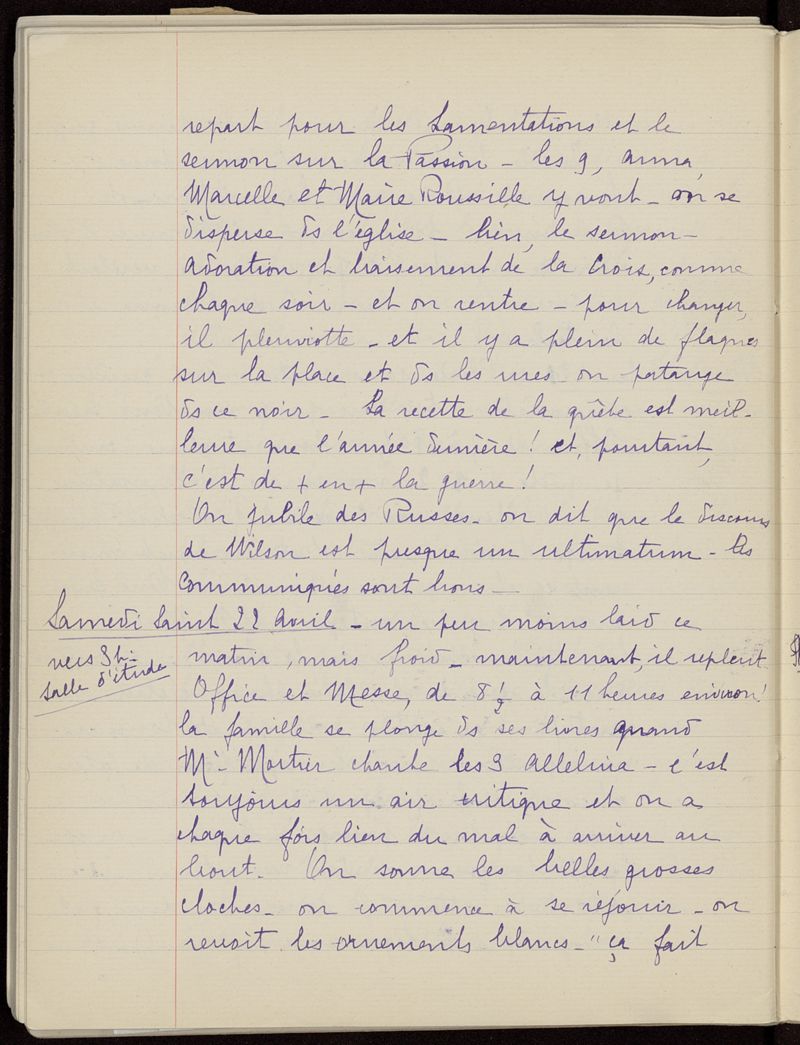 repart pour les Lamentations et le
sermon sur la Passion - les 9, Anna,
Marcelle et Marie Roussille y vont - on se
disperse ds l'église - bien, le sermon -
adoration et baisement de la Croix, comme
chaque soir - et on rentre - pour changer,
il pleuviotte - et il y a plein de flaques
sur la place et ds les rues - on patauge
ds ce noir - La recette de la quête est meil-
leure que l'année dernière ! et, pourtant,
c'est de + en + la guerre !
On jubile des Russes - on dit que le discours
de Wilson est presque un ultimatum - les
communiqués sont bons -
Samedi Saint 22 Avril - un peu moins laid ce
vers 3h.
salle d'étude
matin, mais froid - maintenant, il repleut.
Office et Messe, de 8 1/2 à 11 heures environ !
la famille se plonge ds ses livres quand
Mr Mortier chante les 3 Alleluia - c'est
toujours un air critique et on a
chaque fois bien du mal à arriver au
bout. On sonne les belles grosses
cloches - on commence à se réjouir - on
revoit les ornements blancs - "ça fait